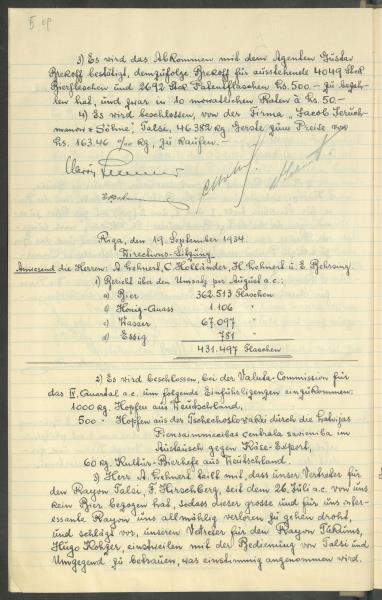 5
3) Es wird das Abkommen mit dem Agenten Gustav
Brekoff bestätigt, demzufolge Brekoff für ausstehende 4049 Stck
Bierflaschen und 2692 Stck Patentflaschen Ls. 500.- zu bezah-
len hat, und zwar in 10 monatlichen Raten à Ls. 50.-
4) Es wird beschlossen, von der Firma „Jacob Jeruch-
manow & Söhne", Talsi, 46.382 kg Gerste zum Preise von
Ls. 163.46 ‰ kg, zu kaufen.-
Riga, den 19. September 1934.
Directions-Sitzung.
Anwesend die Herren: A. Lehnert, C. Holländer, H. Lehnert u. E. Behrsing.
1) Bericht über den Umsatz per August a.c.:
a) Bier 362.513 Flaschen
b) Honig-Quass 1.106 "
c) Wasser 67.097 "
d) Essig 781 "
431.497 Flaschen
2) Es wird beschlossen, bei der Valuta-Commission für
das IV. Quartal a.c. um folgende Einfuhrlizenzen einzukommen:
1000 kg. Hopfen aus Deutschland,
500 " Hopfen aus der Tschechoslovakei durch die Latvijas
Piensaimneecibas centrala saveeniba im
Austausch gegen Käse-Export,
60 kg. Kultur-Bierhefe aus Deutschland.
3) Herr A. Lehnert teilt mit, dass unser Vertreter für
den Rayon Talsi, F. Hirschberg, seit dem 26. Juli a.c. von uns
kein Bier bezogen hat, sodass dieser grosse und für uns inter-
essante Rayon uns allmählig verloren zu gehen droht,
und schlägt vor, unseren Vertreter für den Rayon Tukums,
Hugo Kohger, einstweilen mit der Bedienung von Talsi und
Umgegend zu betrauen, was einstimmig angenommen wird.